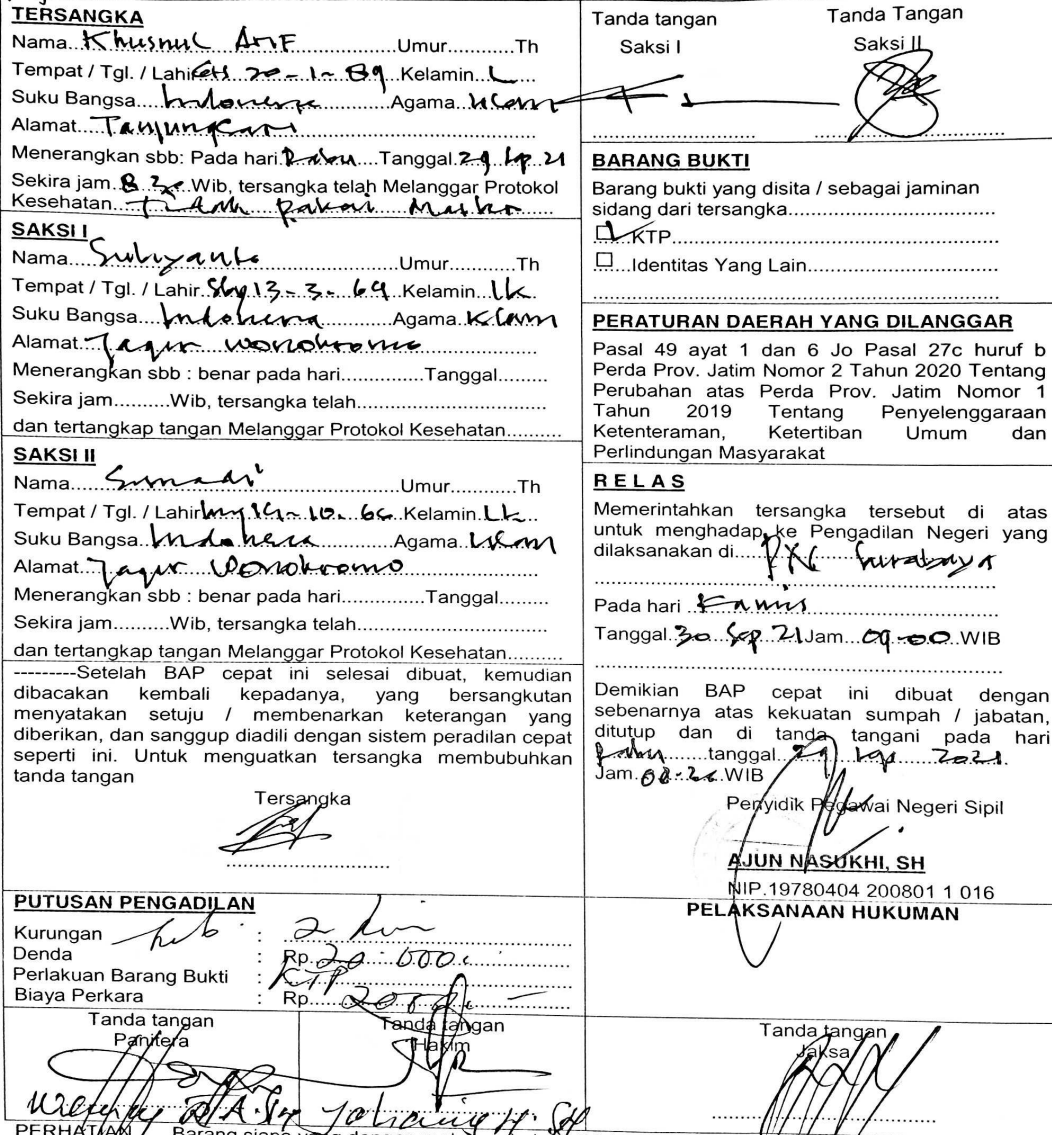 TERSANGKA
Nama..Khusnul Arif..........Umur..........Th
Tempat / Tgl. / Lahir 20 - 1 - 89 Kelamin...L.....
Suku Bangsa....Indonesia..........Agama..Islam
Alamat....Tanjungsari
Menerangkan sbb: Pada hari Rabu....Tanggal.29 Sep 21
Sekira jam 8.30 Wib, tersangka telah Melanggar Protokol
Kesehatan....Tidak pakai Masker
SAKSI I
Nama....Suliyanto..........Umur..........Th
Tempat / Tgl. / Lahir Sby 13 - 3 - 69 Kelamin Lk
Suku Bangsa....Indonesia..........Agama.Islam
Alamat...Jagir Wonokromo
Menerangkan sbb : benar pada hari...............Tanggal.........
Sekira jam..........Wib, tersangka telah...................................
dan tertangkap tangan Melanggar Protokol Kesehatan..........
SAKSI II
Nama.....Sumadi..........Umur..........Th
Tempat / Tgl. / Lahir - 10 - 66 Kelamin Lk
Suku Bangsa.Indonesia..........Agama..Islam
Alamat...Jagir Wonokromo
Menerangkan sbb : benar pada hari...............Tanggal.........
Sekira jam..........Wib, tersangka telah...................................
dan tertangkap tangan Melanggar Protokol Kesehatan..........
---------Setelah BAP cepat ini selesai dibuat, kemudian
dibacakan kembali kepadanya, yang bersangkutan
menyatakan setuju / membenarkan keterangan yang
diberikan, dan sanggup diadili dengan sistem peradilan cepat
seperti ini. Untuk menguatkan tersangka membubuhkan
tanda tangan
Tersangka
Tanda tangan Tanda Tangan
Saksi I Saksi II
BARANG BUKTI
Barang bukti yang disita / sebagai jaminan
sidang dari tersangka.....................................
☑ KTP..........................................................
☐...Identitas Yang Lain..................................
PERATURAN DAERAH YANG DILANGGAR
Pasal 49 ayat 1 dan 6 Jo Pasal 27c huruf b
Perda Prov. Jatim Nomor 2 Tahun 2020 Tentang
Perubahan atas Perda Prov. Jatim Nomor 1
Tahun 2019 Tentang Penyelenggaraan
Ketenteraman, Ketertiban Umum dan
Perlindungan Masyarakat
RELAS
Memerintahkan tersangka tersebut di atas
untuk menghadap ke Pengadilan Negeri yang
dilaksanakan di......PN Surabaya
Pada hari Kamis
Tanggal.30 Sep 21 Jam...09.00 WIB
Demikian BAP cepat ini dibuat dengan
sebenarnya atas kekuatan sumpah / jabatan,
ditutup dan di tanda tangani pada hari
Rabu......tanggal..29 Sep 2021
Jam. WIB
Penyidik Pegawai Negeri Sipil
AJUN NASUKHI, SH
NIP.19780404 200801 1 016
PUTUSAN PENGADILAN
Kurungan : 2 hari
Denda : Rp.20.000.
Perlakuan Barang Bukti : KTP
Biaya Perkara : Rp.....2000. -
PELAKSANAAN HUKUMAN
Tanda tangan Tanda tangan Tanda tangan
Panitera Hakim Jaksa
PERHATIAN Barang siapa yang dengan